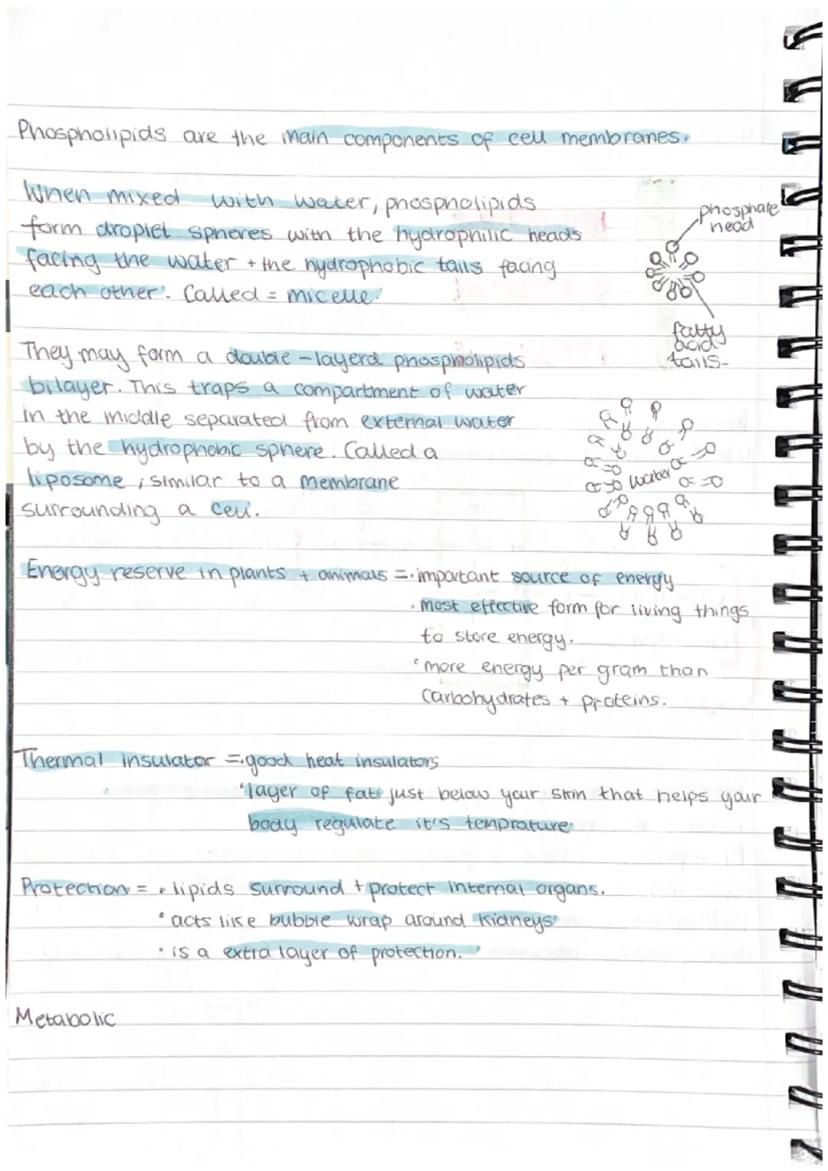 Phospholipids are the main components of cell membranes.
When mixed with water, phospholipids
form droplet spheres with the hydrophilic heads
facing the water + the hydrophobic tails facing
each other. Called = micelle.
phosphate
head
fatty
acid
tails
They may form a double-layerd phospholipids
bilayer. This traps a compartment of water
in the middle separated from external water
by the hydrophobic sphere. Called a
liposome, similar to a membrane
surrounding a cell.
water
Energy reserve in plants + animals = • important source of energy
• most effective form for living things
to store energy.
• more energy per gram than
carbohydrates + proteins.
Thermal insulator = • good heat insulators
• layer of fat just below your skin that helps your
body regulate it's temprature
Protection = • lipids surround + protect internal organs.
• acts like bubble wrap around kidneys
• is a extra layer of protection.
Metabolic